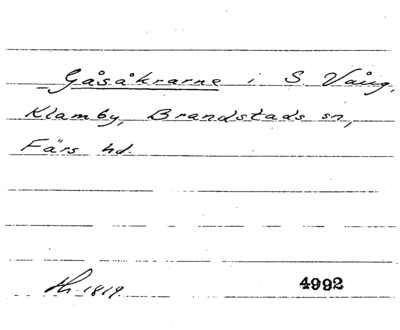 Gåsåkrarne i S. Vång,
Klamby, Brandstads sn,
Färs hd.
Ah. 1819. 4992